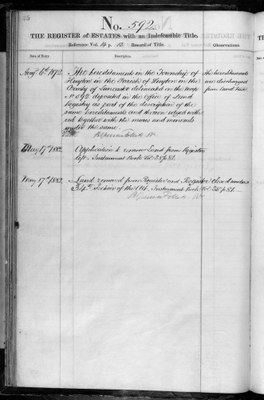 No. 592
THE REGISTER of ESTATES with an Indefeasible Title.
Reference Vol. 14 p. 12. Record of Title
Date of Entry
Description
Observations
Aug 6th 1872. The hereditaments in the Township of
Huyton in the Parish of Huyton in the
County of Lancaster delineated on the map
No. 592 deposited in the office of Land
Registry as part of the description of the
same hereditaments and thereon edged with
red together with the mines and minerals
under the same.
the hereditaments
are discharged
from Land tax
May 17th 1882. Application to remove Land from Register
Instrument Book Vol. 25 p. 81.
May 17th 1882. Land removed from Register and Register closed under
Section of the Act. Instrument Book Vol. 25 p. 81.